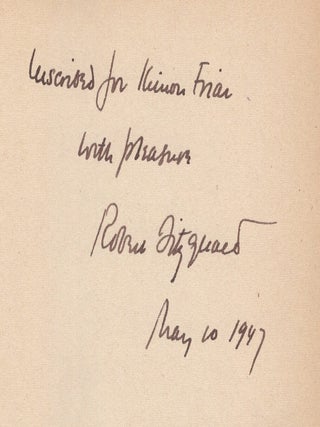 Inscribed for Kimon Friar
with pleasure
Robert Fitzgerald
May 10 1947